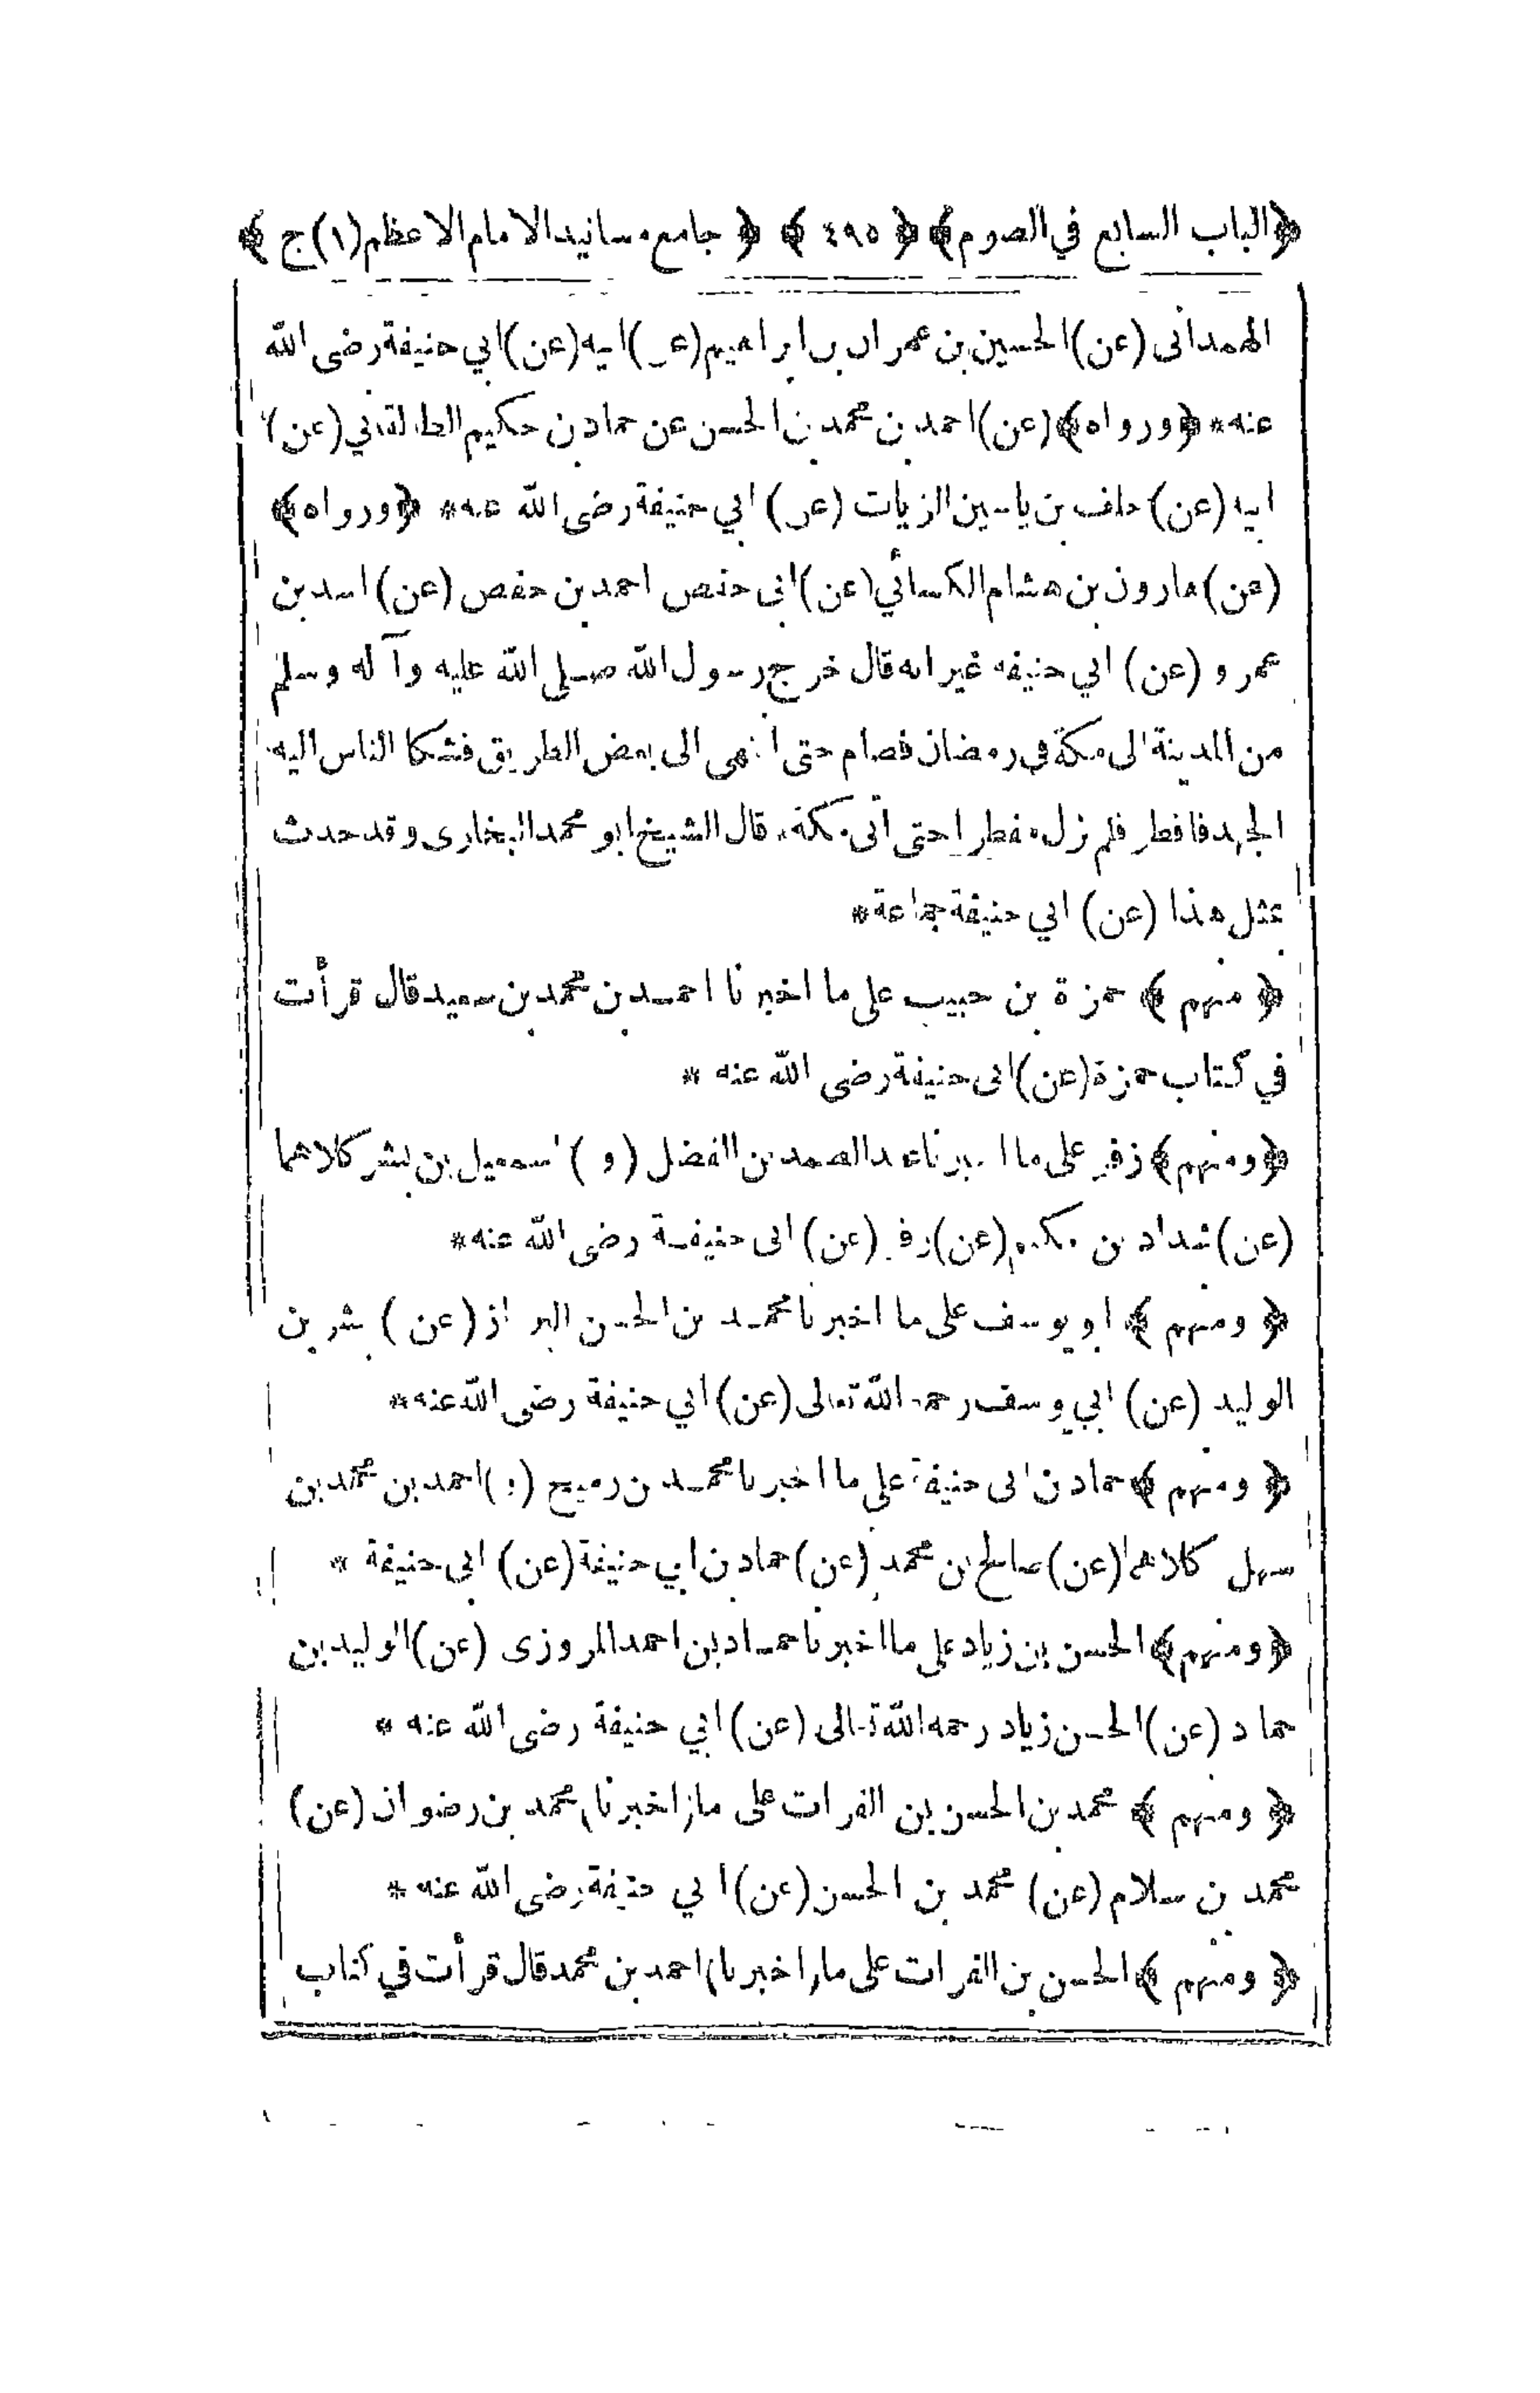 ﴿الباب السابع في الصوم﴾ ﴿ ٤٩٥ ﴾ ﴿ جامع مسانيد الامام الاعظم (١) ج ﴾
الهمدانى (عن) الحسين بن عمران بن ابراهيم (عن) ابيه (عن) ابي حنيفة رضى الله
عنه * ﴿ورواه﴾ (عن) احمد بن محمد بن الحسن عن حماد بن حكيم الطالقاني (عن)
ابيه (عن) خلف بن ياسين الزيات (عن) ابي حنيفة رضى الله عنه * ﴿ورواه﴾
(عن) هارون بن هشام الكسائي (عن) ابى حفص احمد بن حفص (عن) اسد بن
عمرو (عن) ابي حنيفه غير انه قال خرج رسول الله صلى الله عليه وآله وسلم
من المدينة الى مكة فى رمضان فصام حتى انتهى الى بعض الطريق فشكا الناس اليه
الجهد فافطر فلم يزل مفطرا حتى اتى مكة * قال الشيخ ابو محمد البخارى وقد حدث
بمثل هذا (عن) ابي حنيفة جماعة *
﴿ منهم ﴾ حمزة بن حبيب على ما اخبرنا احمد بن محمد بن سعيد قال قرأت
في كتاب حمزة (عن) ابى حنيفة رضى الله عنه *
﴿ومنهم﴾ زفر على ما اخبرنا عبد الصمد بن الفضل (و) اسمعيل بن بشر كلاهما
(عن) شداد بن حكيم (عن) زفر (عن) ابى حنيفة رضى الله عنه *
﴿ ومنهم ﴾ ابو يوسف على ما اخبرنا محمد بن الحسن البزاز (عن) بشر بن
الوليد (عن) ابي يوسف رحمه الله تعالى (عن) ابي حنيفة رضى الله عنه *
﴿ ومنهم ﴾ حماد بن ابى حنيفة على ما اخبرنا محمد بن رميح (و) احمد بن محمد بن
سهل كلاهما (عن) صالح بن محمد (عن) حماد بن ابي حنيفة (عن) ابى حنيفة *
﴿ومنهم﴾ الحسن بن زياد على ما اخبرنا حماد بن احمد المروزى (عن) الوليد بن
حماد (عن) الحسن زياد رحمه الله تعالى (عن) ابي حنيفة رضى الله عنه *
﴿ ومنهم ﴾ محمد بن الحسن بن الفرات على ما اخبرنا محمد بن رضوان (عن)
محمد بن سلام (عن) محمد بن الحسن (عن) ابي حنيفة رضى الله عنه *
﴿ ومنهم ﴾ الحسن بن الفرات على ما اخبرنا احمد بن محمد قال قرأت في كتاب